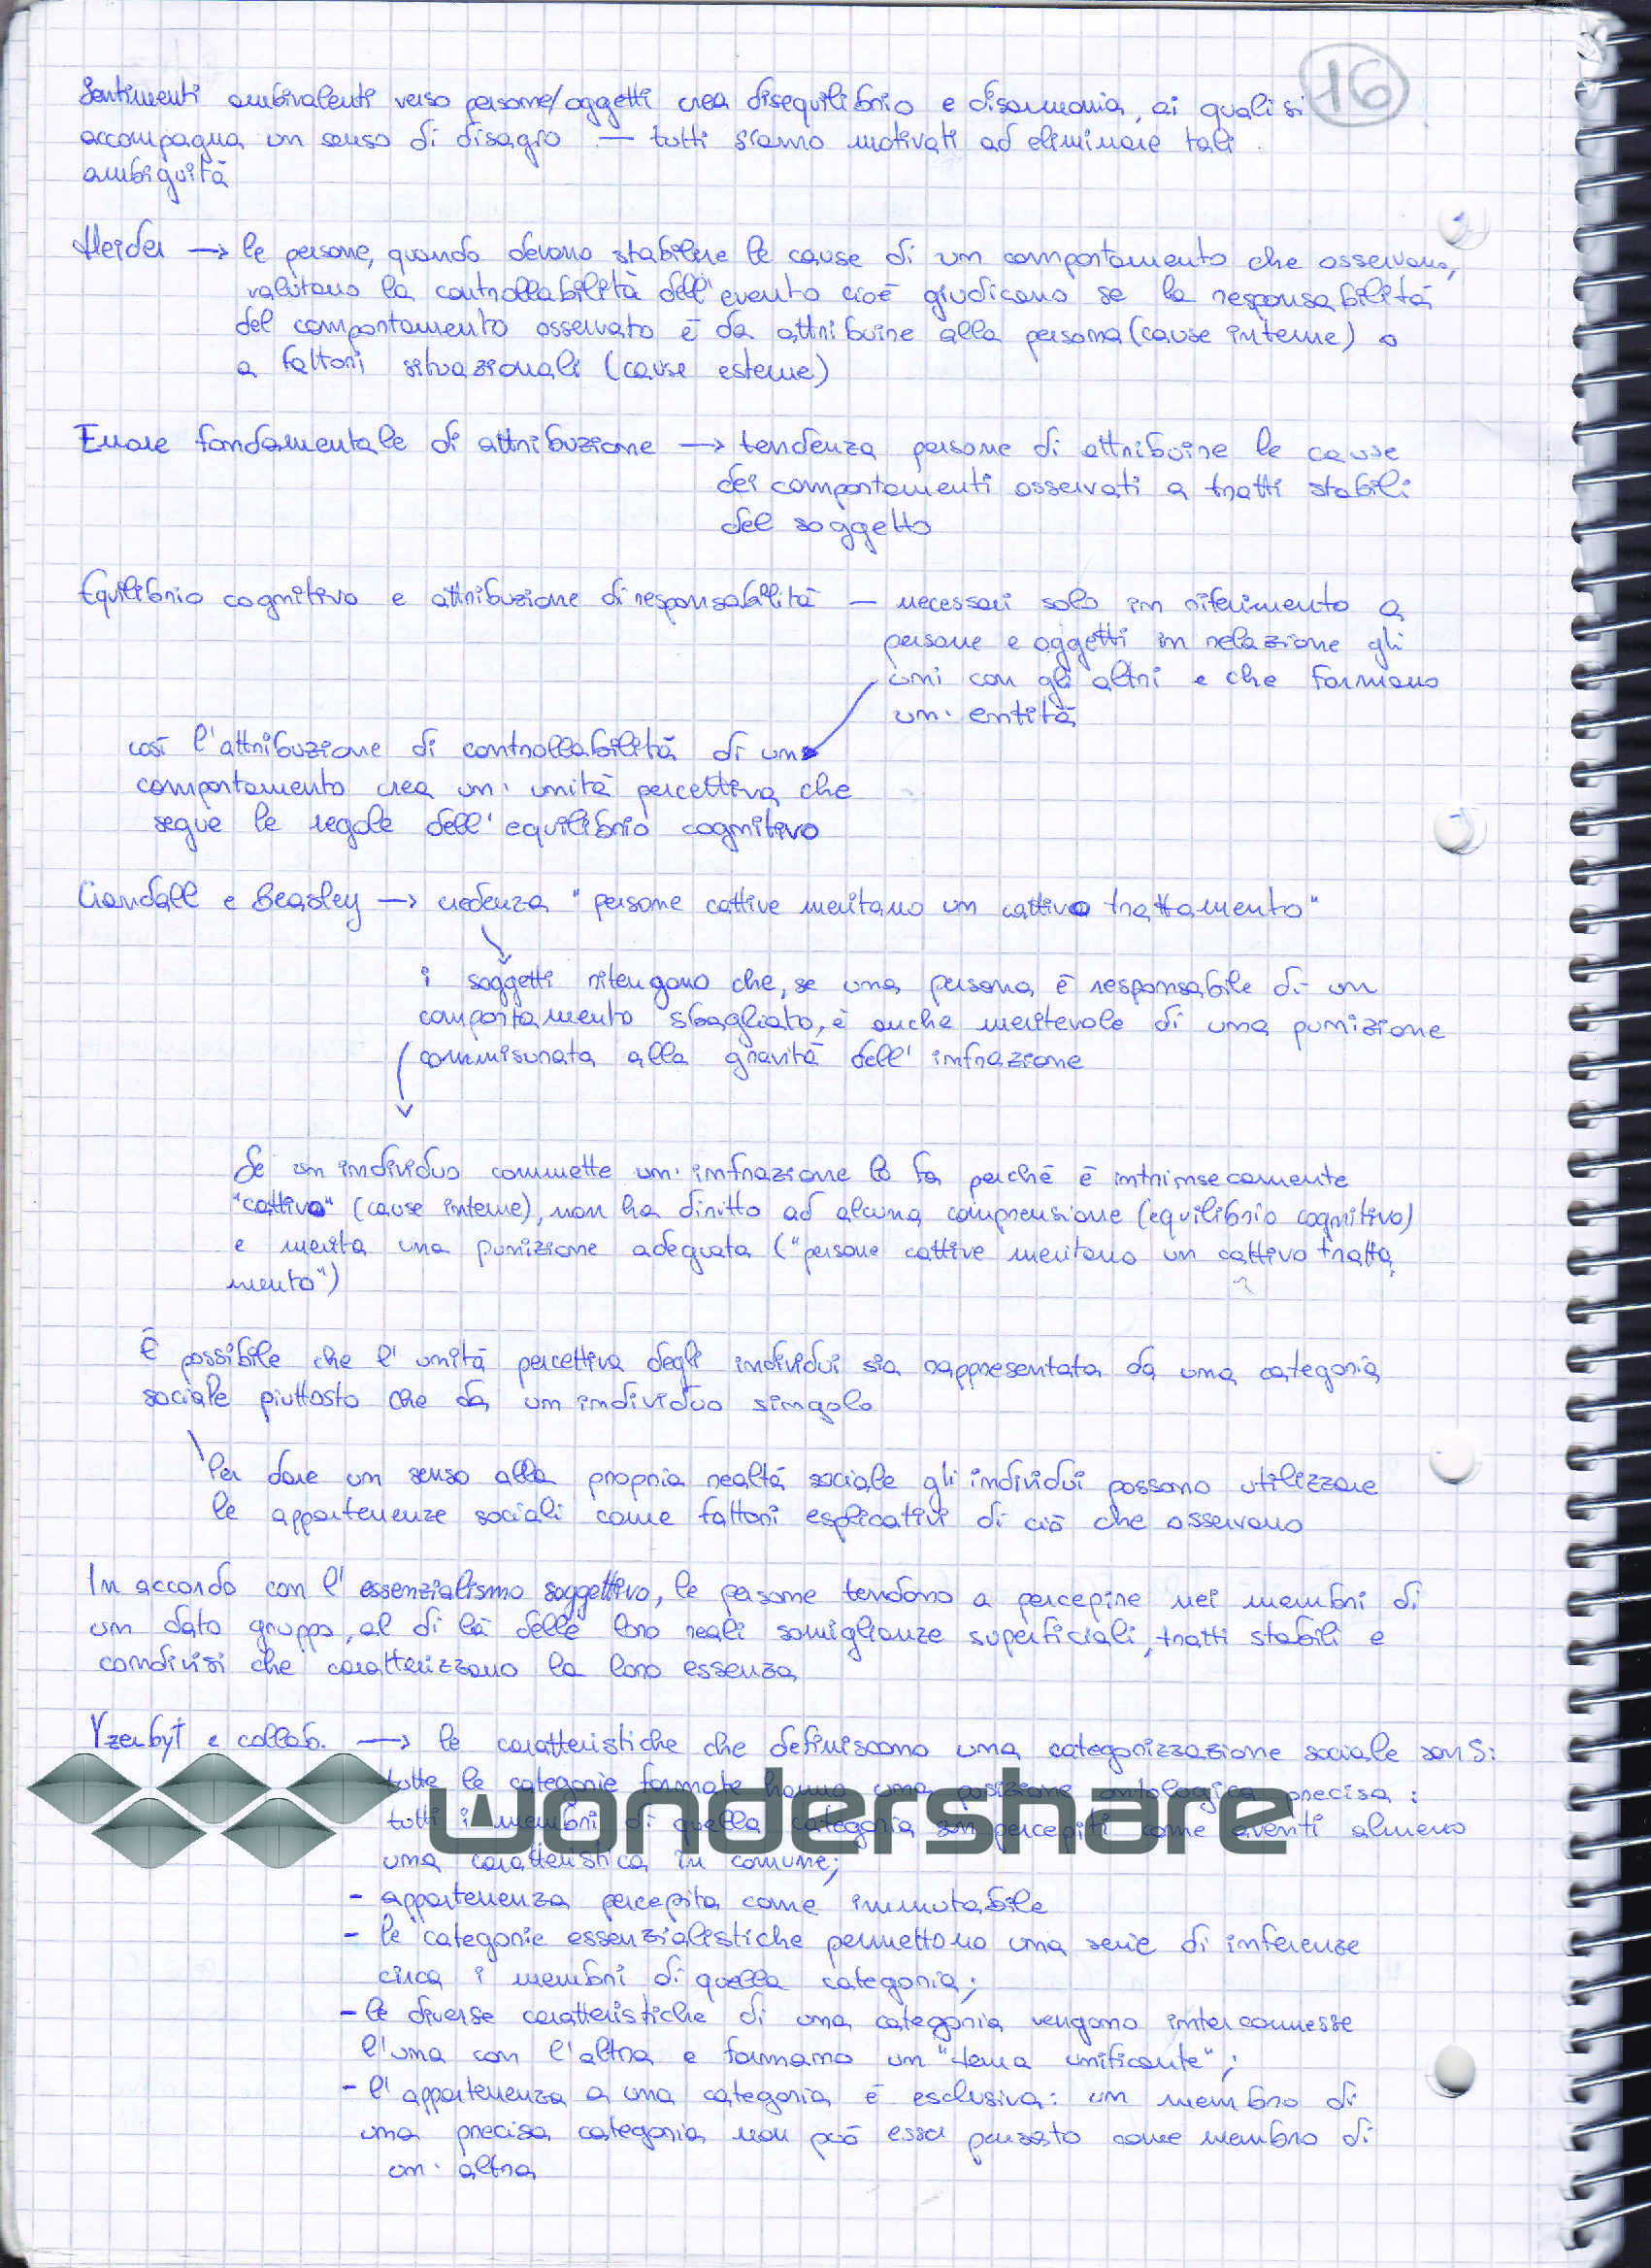 16
Sentimenti ambivalenti verso persone/oggetti crea disequilibrio e disarmonia, ai quali si
accompagna un senso di disagio — tutti siamo motivati ad eliminare tali
ambiguità
Heider → le persone, quando devono stabilire le cause di un comportamento che osservano,
valutano la controllabilità dell'evento cioè giudicano se la responsabilità
del comportamento osservato è da attribuire alla persona (cause interne) o
a fattori situazionali (cause esterne)
Errore fondamentale di attribuzione → tendenza persone di attribuire le cause
dei comportamenti osservati a tratti stabili
del soggetto
Equilibrio cognitivo e attribuzione di responsabilità — necessari solo in riferimento a
persone e oggetti in relazione gli
uni con gli altri e che formano
un'entità
così l'attribuzione di controllabilità di un
comportamento crea un'unità percettiva che
segue le regole dell'equilibrio cognitivo
Crandall e Beasley → credenza "persone cattive meritano un cattivo trattamento"
i soggetti ritengono che, se una persona è responsabile di un
comportamento sbagliato, è anche meritevole di una punizione
commisurata alla gravità dell'infrazione
Se un individuo commette un'infrazione lo fa perché è intrinsecamente
"cattivo" (cause interne), non ha diritto ad alcuna comprensione (equilibrio cognitivo)
e merita una punizione adeguata ("persone cattive meritano un cattivo tratta
mento")
È possibile che l'unità percettiva degli individui sia rappresentata da una categoria
sociale piuttosto che da un individuo singolo
Per dare un senso alla propria realtà sociale gli individui possono utilizzare
le appartenenze sociali come fattori esplicativi di ciò che osservano
In accordo con l'essenzialismo soggettivo, le persone tendono a percepire nei membri di
un dato gruppo, al di là delle loro reali somiglianze superficiali, tratti stabili e
condivisi che caratterizzano la loro essenza
Yzerbyt e collab. → le caratteristiche che definiscono una categorizzazione sociale sono 5:
tutte le categorie formate hanno una posizione ontologica precisa:
tutti i membri di quella categoria son percepiti come aventi almeno
una caratteristica in comune;
- appartenenza percepita come immutabile
- le categorie essenzialistiche permettono una serie di inferenze
circa i membri di quella categoria;
- le diverse caratteristiche di una categoria vengono interconnesse
l'una con l'altra e formano un "tema unificante";
- l'appartenenza a una categoria è esclusiva: un membro di
una precisa categoria non può esser pensato come membro di
un'altra
wondershare